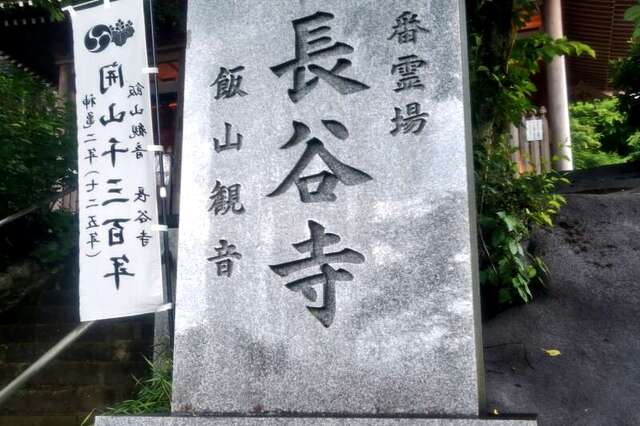 番霊場
長谷寺
飯山観音
神亀二年(七二五年)
開山千三百年
飯山観音 長谷寺